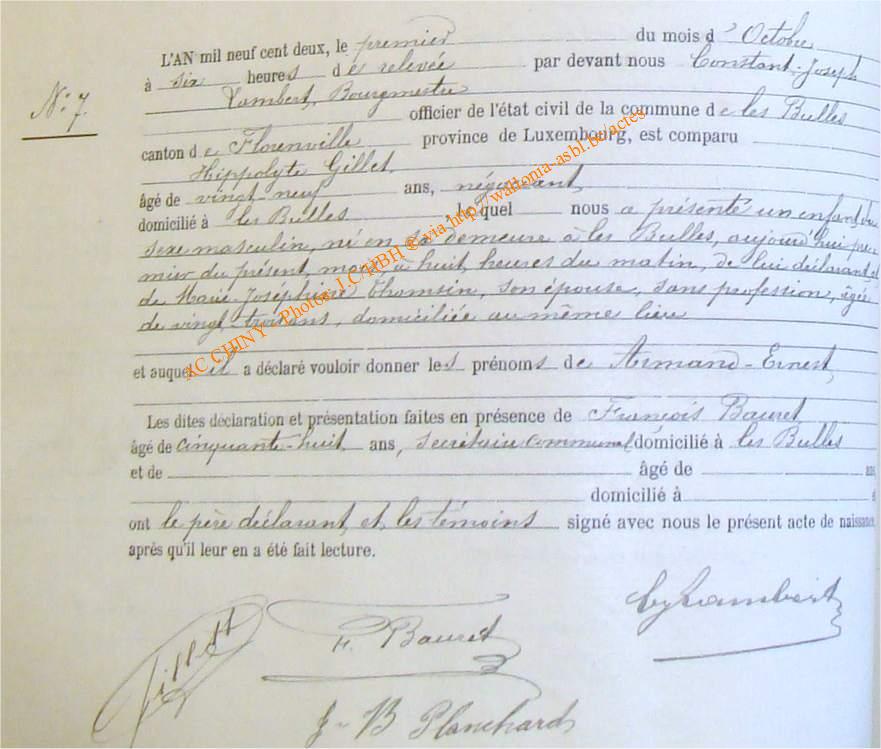 L'AN mil neuf cent deux, le premier du mois d' Octobre
à six heures de relevée par devant nous Constant-Joseph
N° 7.
Lambert, Bourgmestre
officier de l'état civil de la commune de les Bulles
canton de Florenville province de Luxembourg, est comparu
Hippolyte Gillet,
âgé de vingt-neuf ans, négociant,
domicilié à les Bulles lequel nous a présenté un enfant du
sexe masculin, né en sa demeure à les Bulles, aujourd'hui pre-
mier du présent mois, à huit heures du matin, de lui déclarant et
de Marie-Joséphine Thomsin, son épouse, sans profession, âgée
de vingt-trois ans, domiciliée au même lieu
et auquel il a déclaré vouloir donner les prénoms de Armand-Ernest,
Les dites déclaration et présentation faites en présence de François Bauret
âgé de cinquante-huit ans, secrétaire communal domicilié à les Bulles
et de âgé de ans
domicilié à
ont le père déclarant, et les témoins signé avec nous le présent acte de naissance
après qu'il leur en a été fait lecture.
AC CHINY - Photos J.C. HBH @ via http://wallonia-asbl.be/actes
Lambert
Gillet
F. Bauret
J-B Planchard